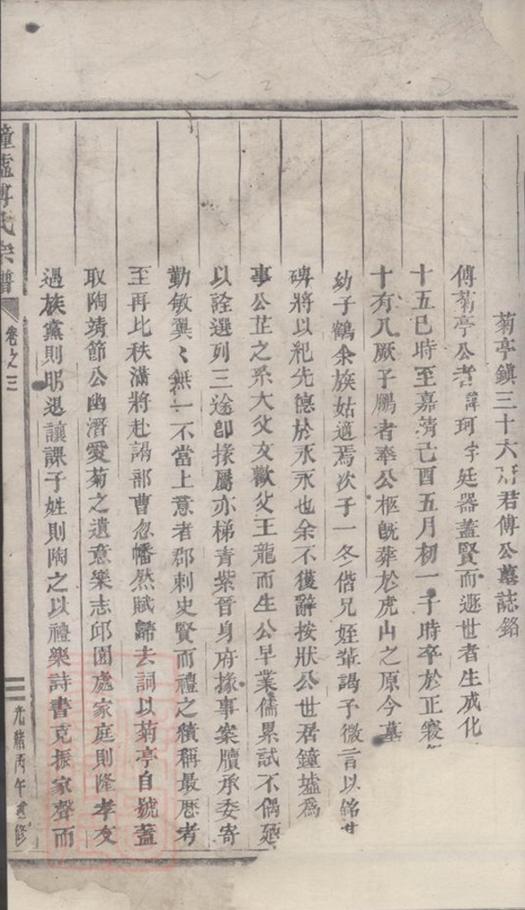 菊亭鎮三十六府君傅公墓誌銘
傅菊亭公者諱珂字廷器蓋賢而遯世者生成化
十五巳時至嘉靖己酉五月初一子時卒於正寢
十有八厥子鵬者奉公柩既葬於虎山之原今墓
幼子鶴余族姑適焉次子一冬偕兄姪輩謁予徵言以銘其
碑將以紀先德於永永也余不獲辭按狀公世居鐘墟為
事公芷之系大父文歡父王龍而生公早業儒累試不偶廼
以詮選列三途即掾屬亦梯青紫晉身府掾事案牘承委寄
勤敏冀〻無一不當上意者郡刺史賢而禮之積稱最歷考
至再比秩滿將赴詣部曹忽幡然賦歸去詞以菊亭自號蓋
取陶靖節公幽潛愛菊之遺意樂志邱園處家庭則隆孝友
過族黨則昭退讓課子姓則陶之以禮樂詩書克振家聲而
鐘墟傅氏宗譜 卷之三 光緒丙午重修